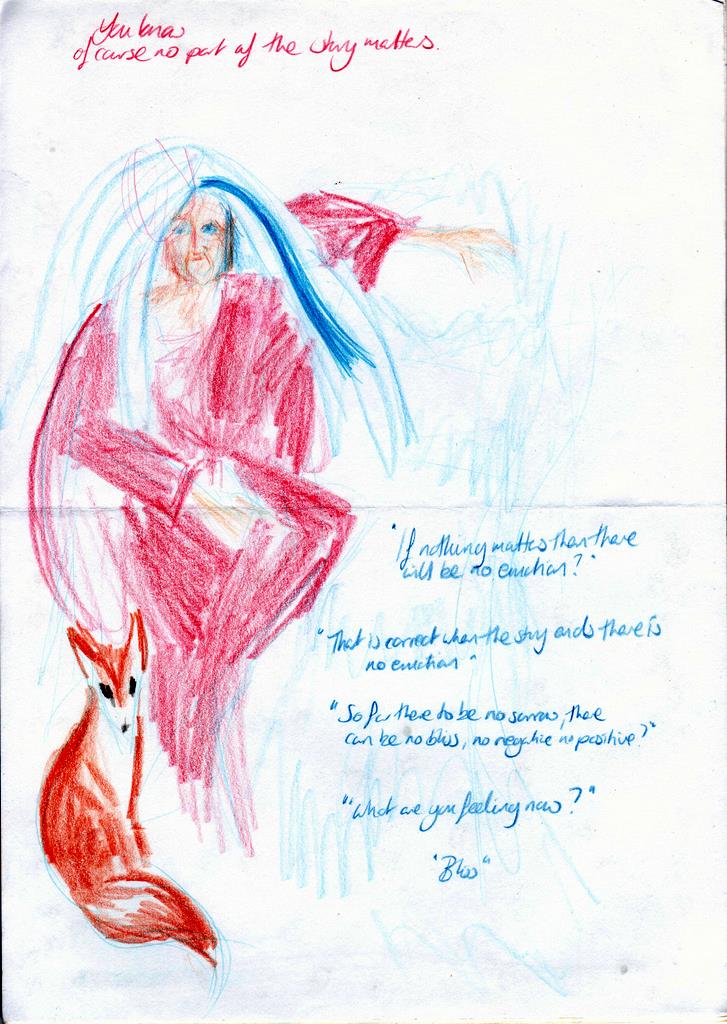 You know
of course no part of the story matters.
"If nothing matters then there
will be no emotion?"
"That is correct when the story ends there is
no emotion"
"So for there to be no sorrow, there
can be no bliss, no negative no positive?"
"what are you feeling now?"
"Bliss"